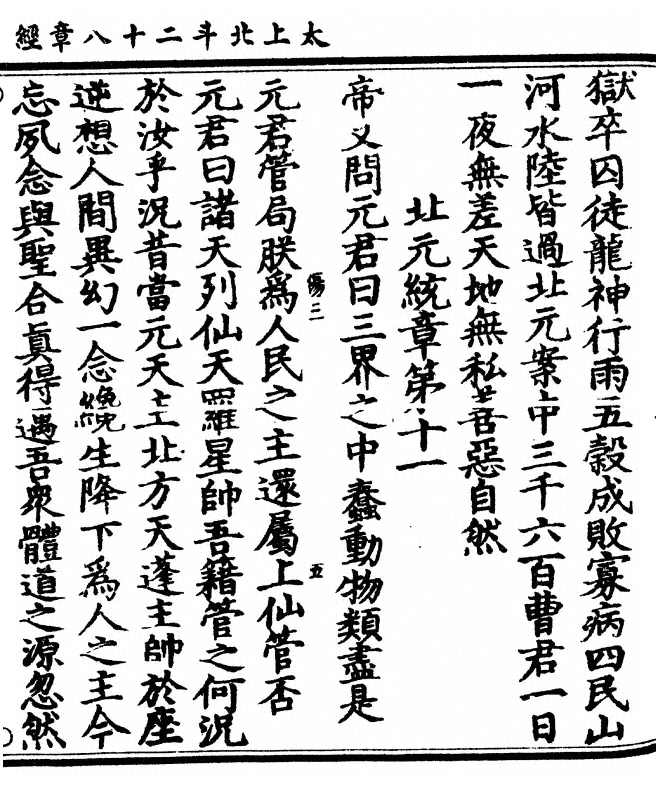 太上北斗二十八章經
獄卒囚徒龍神行雨五穀成敗寡病四民山
河水陸皆過北元案中三千六百曹君一日
一夜無差天地無私善惡自然
北元統章第十一
帝又問元君曰三界之中蠢動物類盡是
元君管局朕為人民之主還屬上仙管否
傷三
五
元君曰諸天列仙天羅星帥吾籍管之何況
於汝乎況昔當元天主北方天蓬主帥於座
逆想人間異幻一念纔生降下為人之主今
忘夙念與聖合眞得遇吾衆體道之源忽然